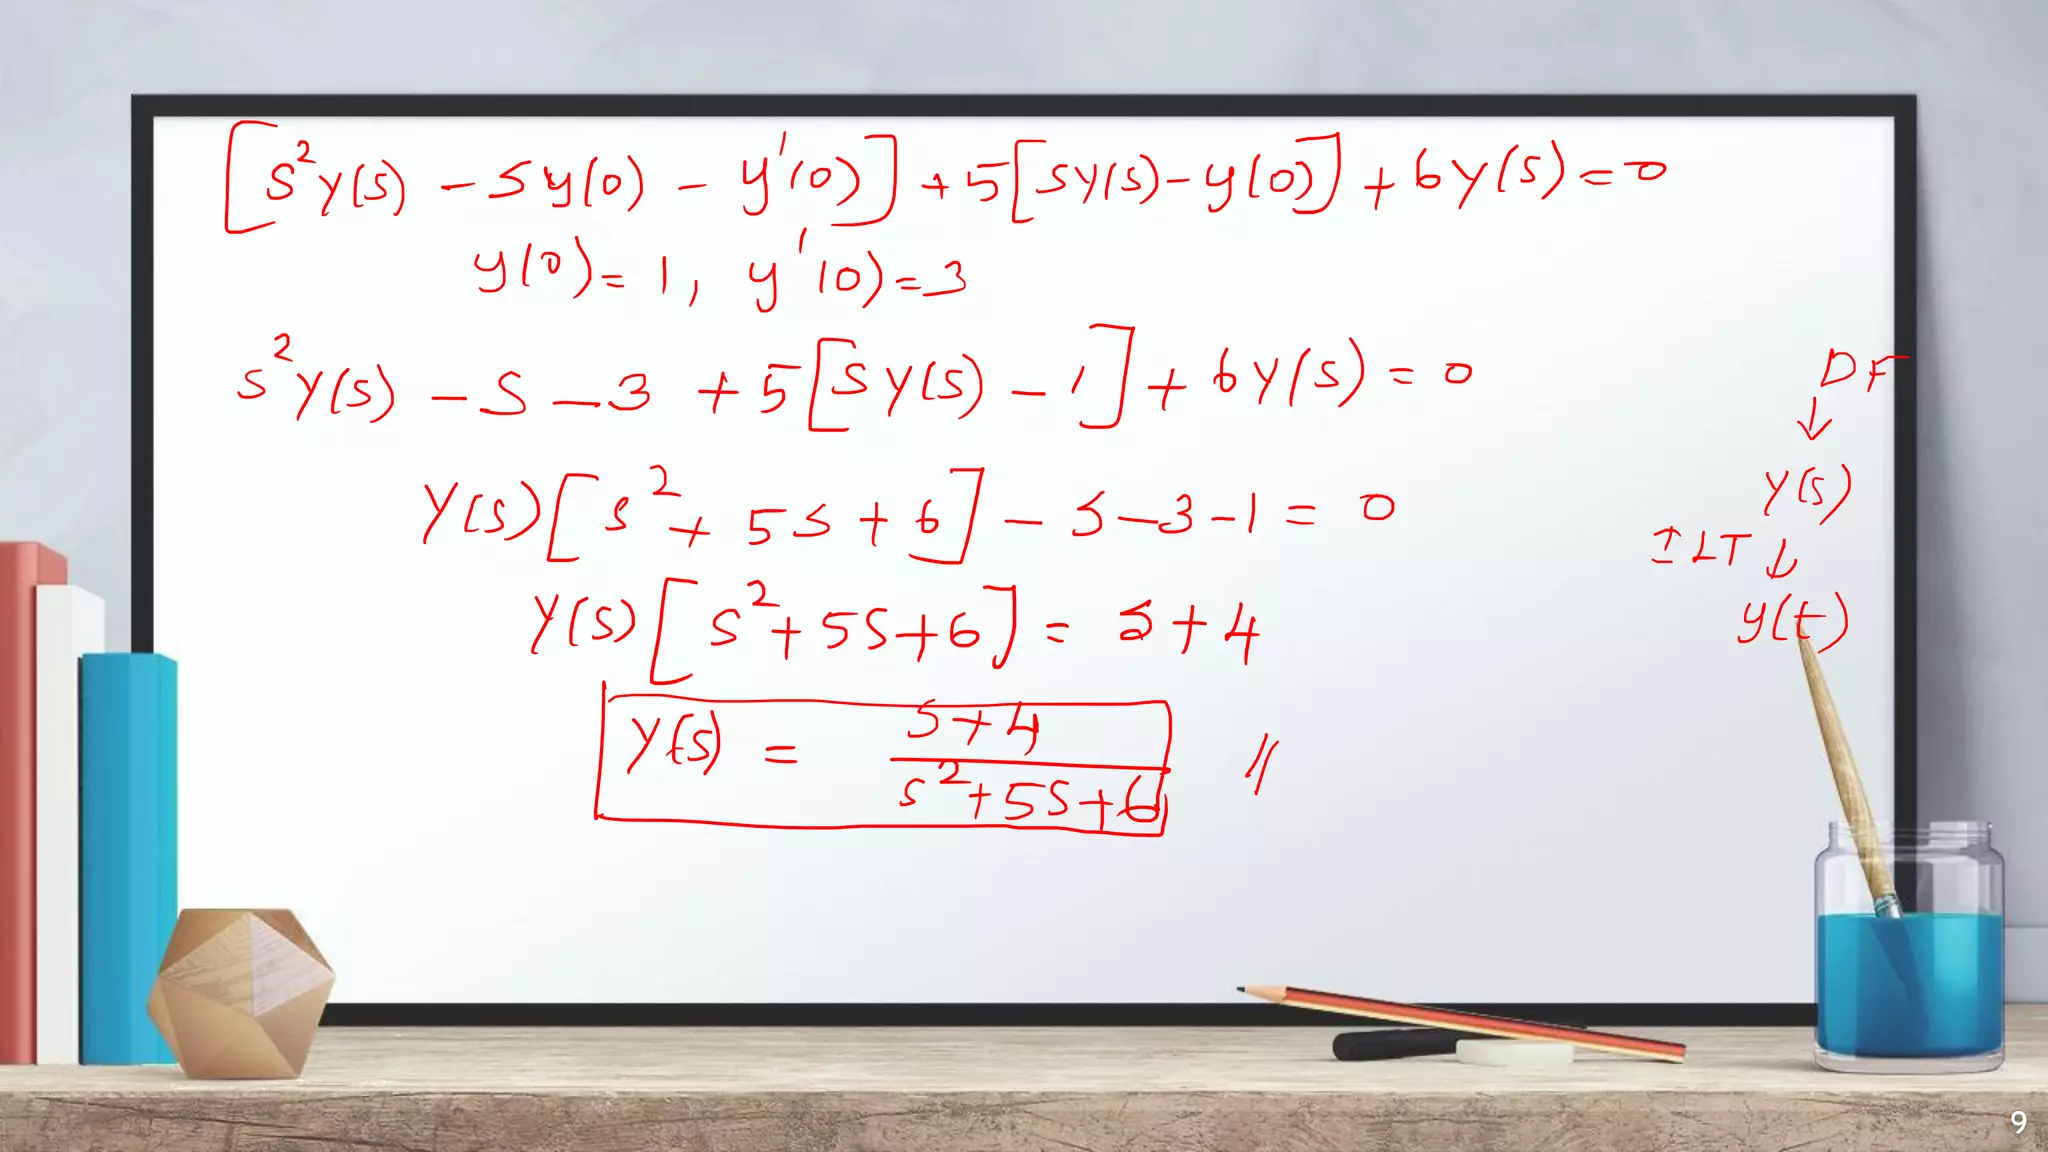 [s²Y(s) - sy(0) - y'(0)] + 5[sY(s) - y(0)] + 6Y(s) = 0
y(0) = 1, y'(0) = 3
s²Y(s) - s - 3 + 5[sY(s) - 1] + 6Y(s) = 0
Y(s)[s² + 5s + 6] - s - 3 - 1 = 0
Y(s)[s² + 5s + 6] = s + 4
Y(s) = (s + 4)/(s² + 5s + 6) //
DF
↓
Y(s)
ILT ↓
y(t)
9